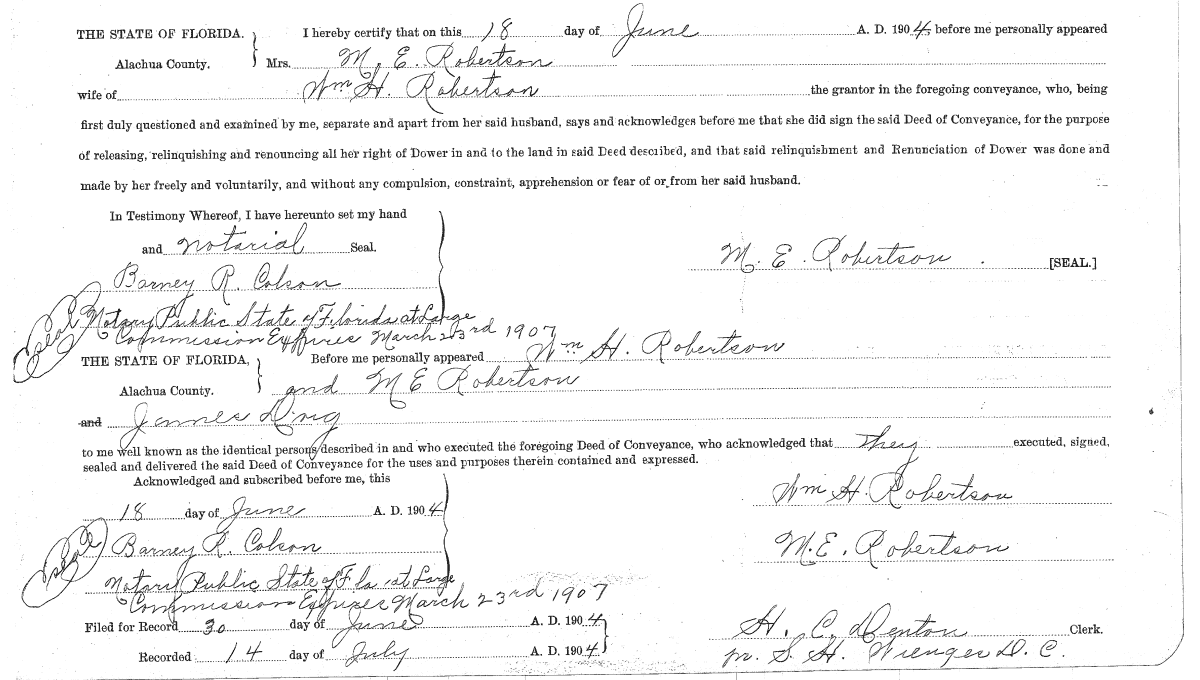 THE STATE OF FLORIDA. I hereby certify that on this 18 day of June A. D. 1904, before me personally appeared
Alachua County. Mrs. M. E. Robertson
wife of Wm H. Robertson the grantor in the foregoing conveyance, who, being
first duly questioned and examined by me, separate and apart from her said husband, says and acknowledges before me that she did sign the said Deed of Conveyance, for the purpose
of releasing, relinquishing and renouncing all her right of Dower in and to the land in said Deed described, and that said relinquishment and Renunciation of Dower was done and
made by her freely and voluntarily, and without any compulsion, constraint, apprehension or fear of or from her said husband.
In Testimony Whereof, I have hereunto set my hand
and notarial Seal. M. E. Robertson . [SEAL.]
Barney R. Colson
Seal Notary Public State of Florida at Large
Commission Expires March 23rd 1907
THE STATE OF FLORIDA, Before me personally appeared Wm H. Robertson
Alachua County. and M E Robertson
and James
to me well known as the identical persons described in and who executed the foregoing Deed of Conveyance, who acknowledged that they executed, signed,
sealed and delivered the said Deed of Conveyance for the uses and purposes therein contained and expressed.
Acknowledged and subscribed before me, this
18 day of June A. D. 1904 Wm H. Robertson
Seal Barney R. Colson M. E. Robertson
Notary Public State of Fla. at Large
Commission Expires March 23rd 1907
Filed for Record 30 day of June A. D. 1904 H. C. Denton Clerk.
Recorded 14 day of July A. D. 1904 pr. S. H. Wienges D. C.